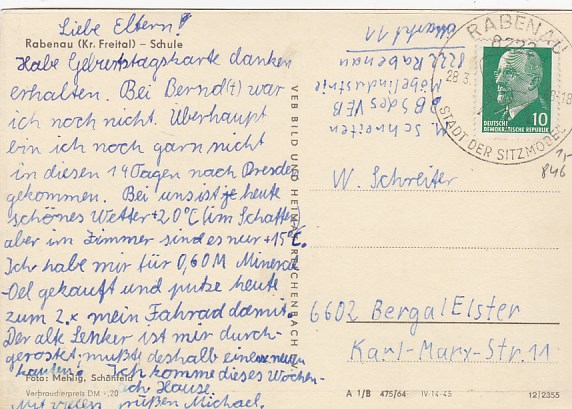 Liebe Eltern!
Rabenau (Kr. Freital) – Schule
Habe Geburtstagskarte danken
erhalten. Bei Bernd(t) war
ich noch nicht. Überhaupt
bin ich noch gar nicht
in diesen 14 Tagen nach Dresden
gekommen. Bei uns ist je heute
schönes Wetter +20°C (im Schatten
aber im Zimmer sind es nur +15°C.
Ich habe mir für 0,60 M Mineral
-Oel gekauft und putze heute
zum 2. x mein Fahrad damit.
Der alte Lenker ist mir durch-
gerostet; mußte deshalb einen neuen
kaufen. Ich komme dieses Wochen-
Foto: Mehlig, Schönfeld
Verbraucherpreis DM -,20
nach Hause.
Mit vielen Grüßen Michael.
VEB BILD UND HEIMAT REICHENBACH
M. Schreiter
BBS des VEB
Möbelindustrie
8222 Rabenau
Markt 11
RABENAU
8222
28.3.
-18
STADT DER SITZMÖBEL
10
DEUTSCHE
DEMOKRATISCHE REPUBLIK
15
846
W. Schreiter
6602 Berga/Elster
Karl-Marx-Str. 11
A 1/B 475/64 IV-14-45
12/2355